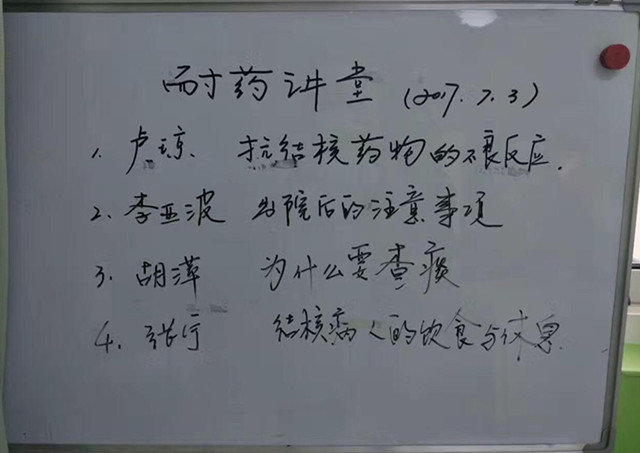 耐药讲堂 (2017.7.3)
1. 卢琼 抗结核药物的不良反应.
2. 李亚波 出院后的注意事项
3. 胡萍 为什么要查痰
4. 张行 结核病人的饮食与休息